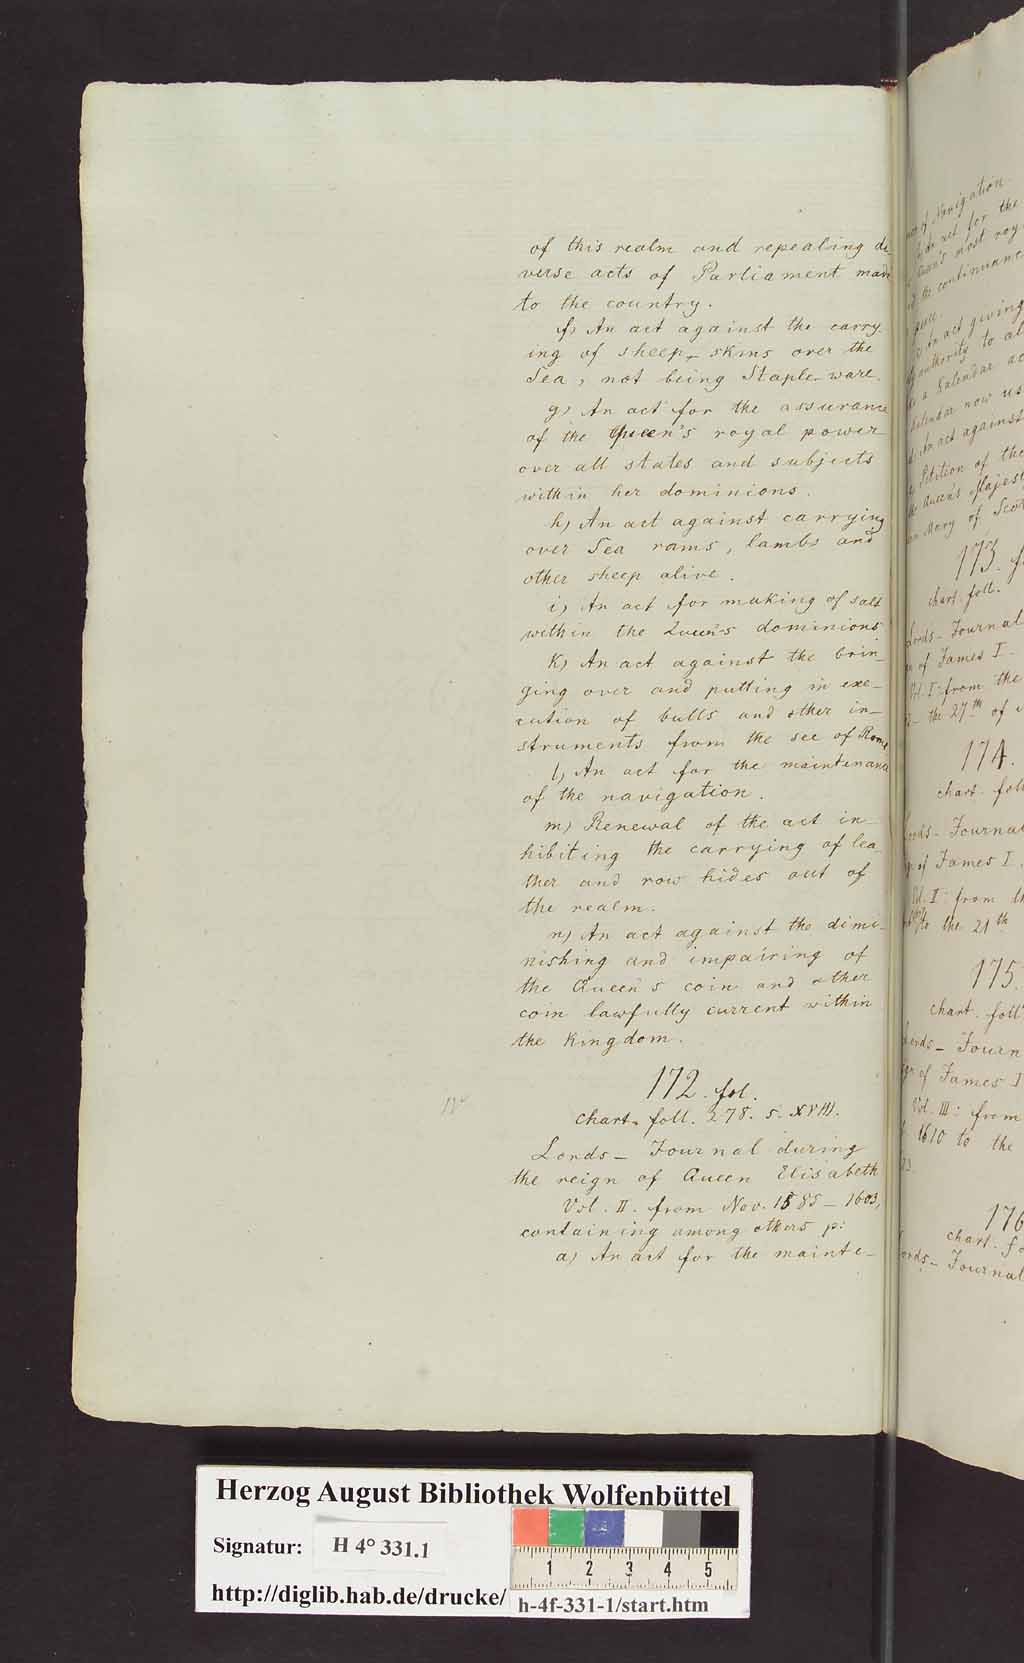 of this realm and repealing di-
verse acts of Parliament made
to the country.
f) An act against the carry-
ing of sheep-skins over the
Sea, not being Staple-ware.
g) An act for the assurance
of the Queen's royal power
over all states and subjects
within her dominions.
h) An act against carrying
over Sea rams, lambs and
other sheep alive.
i) An act for making of salt
within the Queen's dominions
k) An act against the brin-
ging over and putting in exe-
cution of bulls and other in-
struments from the see of Rome
l) An act for the maintenance
of the navigation.
m) Renewal of the act in-
hibiting the carrying of lea-
ther and row hides out of
the realm.
n) An act against the dimi-
nishing and impairing of
the Queen's coin and other
coin lawfully current within
the Kingdom.
172. fol.
chart. foll. 278. s. XVIII.
Lords-Journal during
the reign of Queen Elisabeth
Vol. II. from Nov. 1585-1603,
containing among others p:
a) An act for the mainte-
of Navigation
act for the
Queen's most
the continuance
An act giving
authority to
a Kalendar
Kalendar now
An act against
Petition of the
Queen's Majest
Mary of Scot
173. f
chart. foll.
Lords-Journal
of James I
Vol. I: from the
the 27th of
174.
chart. fol
Lords-Journal
of James I.
Vol. II: from
to the 21th
175.
chart. foll
Lords-Journ
of James I
Vol. III: from
1610 to the
176
chart. fo
Lords-Journal
Herzog August Bibliothek Wolfenbüttel
Signatur: H 4° 331.1
1 2 3 4 5
http://diglib.hab.de/drucke/h-4f-331-1/start.htm